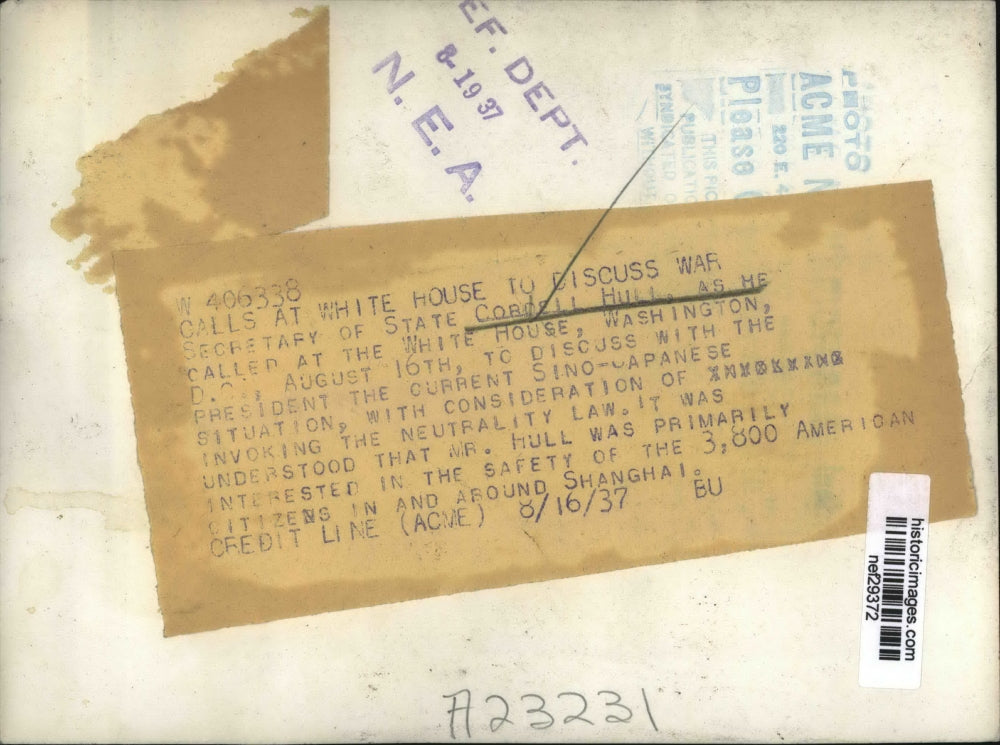 EF. DEPT.
8-19 37
N. E. A.
PHOTO
ACME N
220 E. 4
Please
THIS PIC
PUBLICATIO
W 406338
CALLS AT WHITE HOUSE TO DISCUSS WAR
SECRETARY OF STATE CORDELL HULL, AS HE
CALLED AT THE WHITE HOUSE, WASHINGTON,
D.C., AUGUST 16TH, TO DISCUSS WITH THE
PRESIDENT THE CURRENT SINO-JAPANESE
SITUATION, WITH CONSIDERATION OF
INVOKING THE NEUTRALITY LAW. IT WAS
UNDERSTOOD THAT MR. HULL WAS PRIMARILY
INTERESTED IN THE SAFETY OF THE 3,800 AMERICAN
CITIZENS IN AND AROUND SHANGHAI.
CREDIT LINE (ACME) 8/16/37 BU
historicimages.com
nef29372
A23231